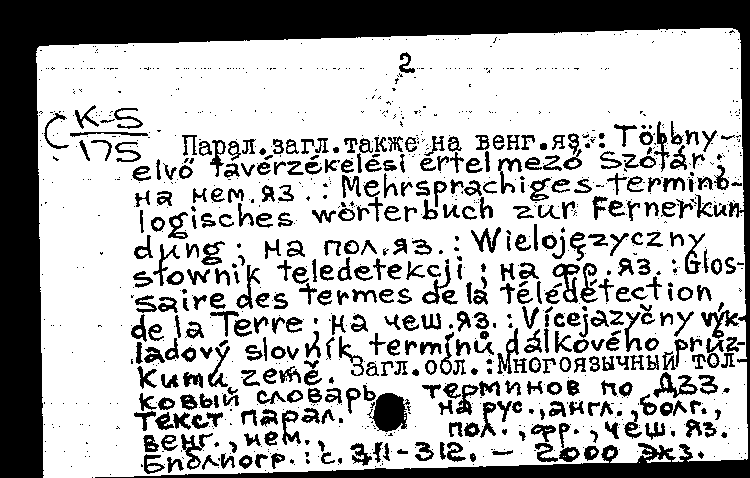 2
К-5
175
Парал.загл.также на венг.яз.: Többny-
elvő távérzékelési értelmező szótár;
на нем.яз.: Mehrsprachiges termino-
logisches wörterbuch zur Fernerkun-
dung; на пол.яз.: Wielojęzyczny
słownik teledetekcji; на фр.яз.: Glos-
saire des termes de la télédétection
de la Terre; на чеш.яз.: Vícejazyčny výk-
ladový slovník termínů dálkového průz-
kumu země. Загл.обл.: Многоязычный тол-
ковый словарь терминов по ДЗЗ.
Текст парал. на рус., англ., болг.,
венг., нем., пол., фр., чеш. яз.
Библиогр.: с. 311-312. – 2000 экз.